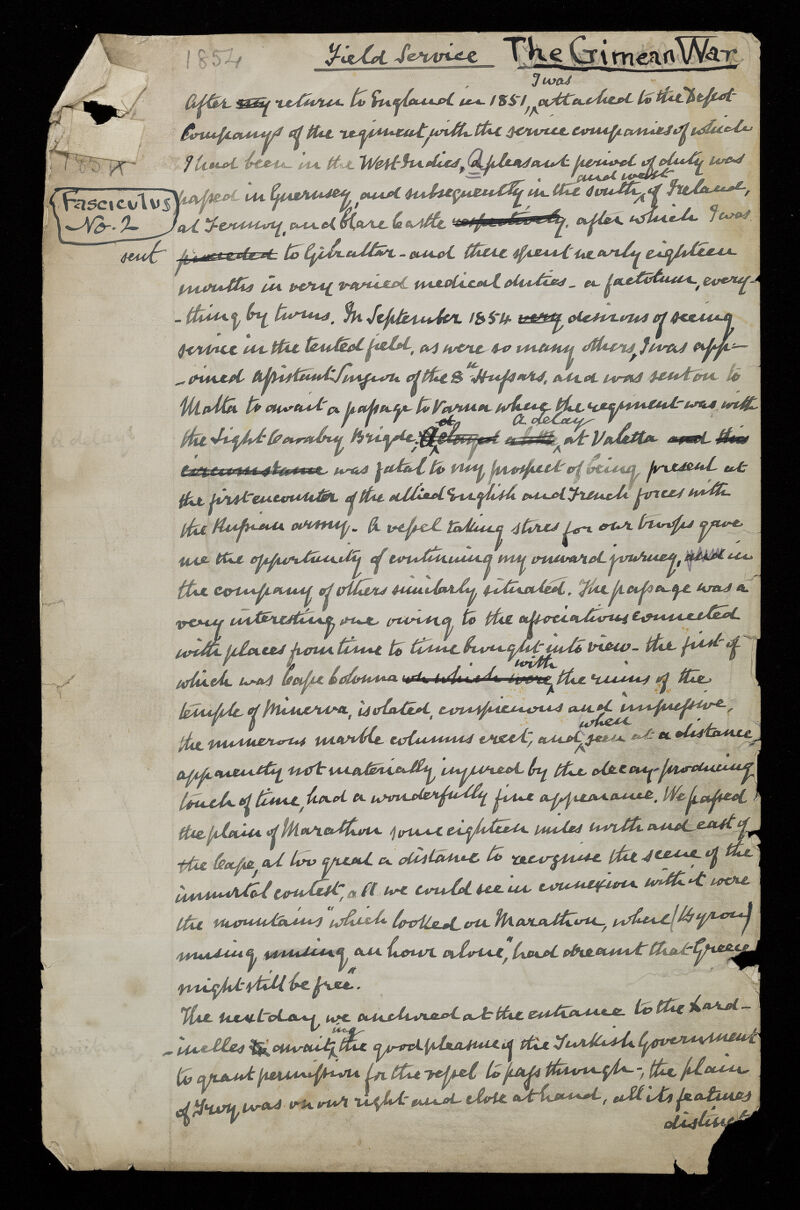 1854
Field Service The Crimean War
I was
After my return to England in 1851, attached to the Depot
Companys of the regiment, with the service companies of which
I had been in the West Indies, A pleasant period of duty was
and west
passed in Guernsey, and subsequently in the south, of Ireland,
Fasciculus
No. 2
at Fermoy, and Clare Castle respectively. after which I was
sent proceeded to Gibraltar - and there spent nearly eighteen
months in very varied medical duties - a factotum, every-
-thing by turns. In September 1854 very desirous of seeing
service in the tented field, as were so many others, I was app-
-oined Assistant Surgeon of the 8th Hussars, and was sent on to
Malta to await a passage to Varna where the regiment was with
A delay
the Light Cavalry Brigde. delayed at Valetta and this
A delay
circumstance was fatal to my prospect of being present at
the first encounter of the allied English and French forces with
the Russian army. A vessel taking stores for our troops gave
me the opportunity of continuing my onward journey, and in
the company of others similarly situated. The passage was a
very interesting one owing to the associations connected
with places from time to time brought into view - the first of
with
which was Cape Colonna on which were the ruins of the
temple of Minerva, isolated, conspicuous and impressive,
when
the numerous marble columns erect, and, seen at a distance,
apparently not materially injured by the decay-producing
touch of time, had a wonderfully fine appearance. We passed
the plain of Marathon some eighteen miles north and east of
the Cape, at too great a distance to recognise the scene of the
immortal contest, all we could see in connexion with it were
the mountains "which looked on Marathon, where (Byron)
musing musing an hour alone", had dreamt that Greece
might still be free".
The next day we anchored at the entrance to the Dard-
ing
-inelles to await, the good pleasure of the Turkish Government
awaiting
to grant permission for the vessel to pass through -, the plain
of Troy was on our right and close at hand, all its features
distinct